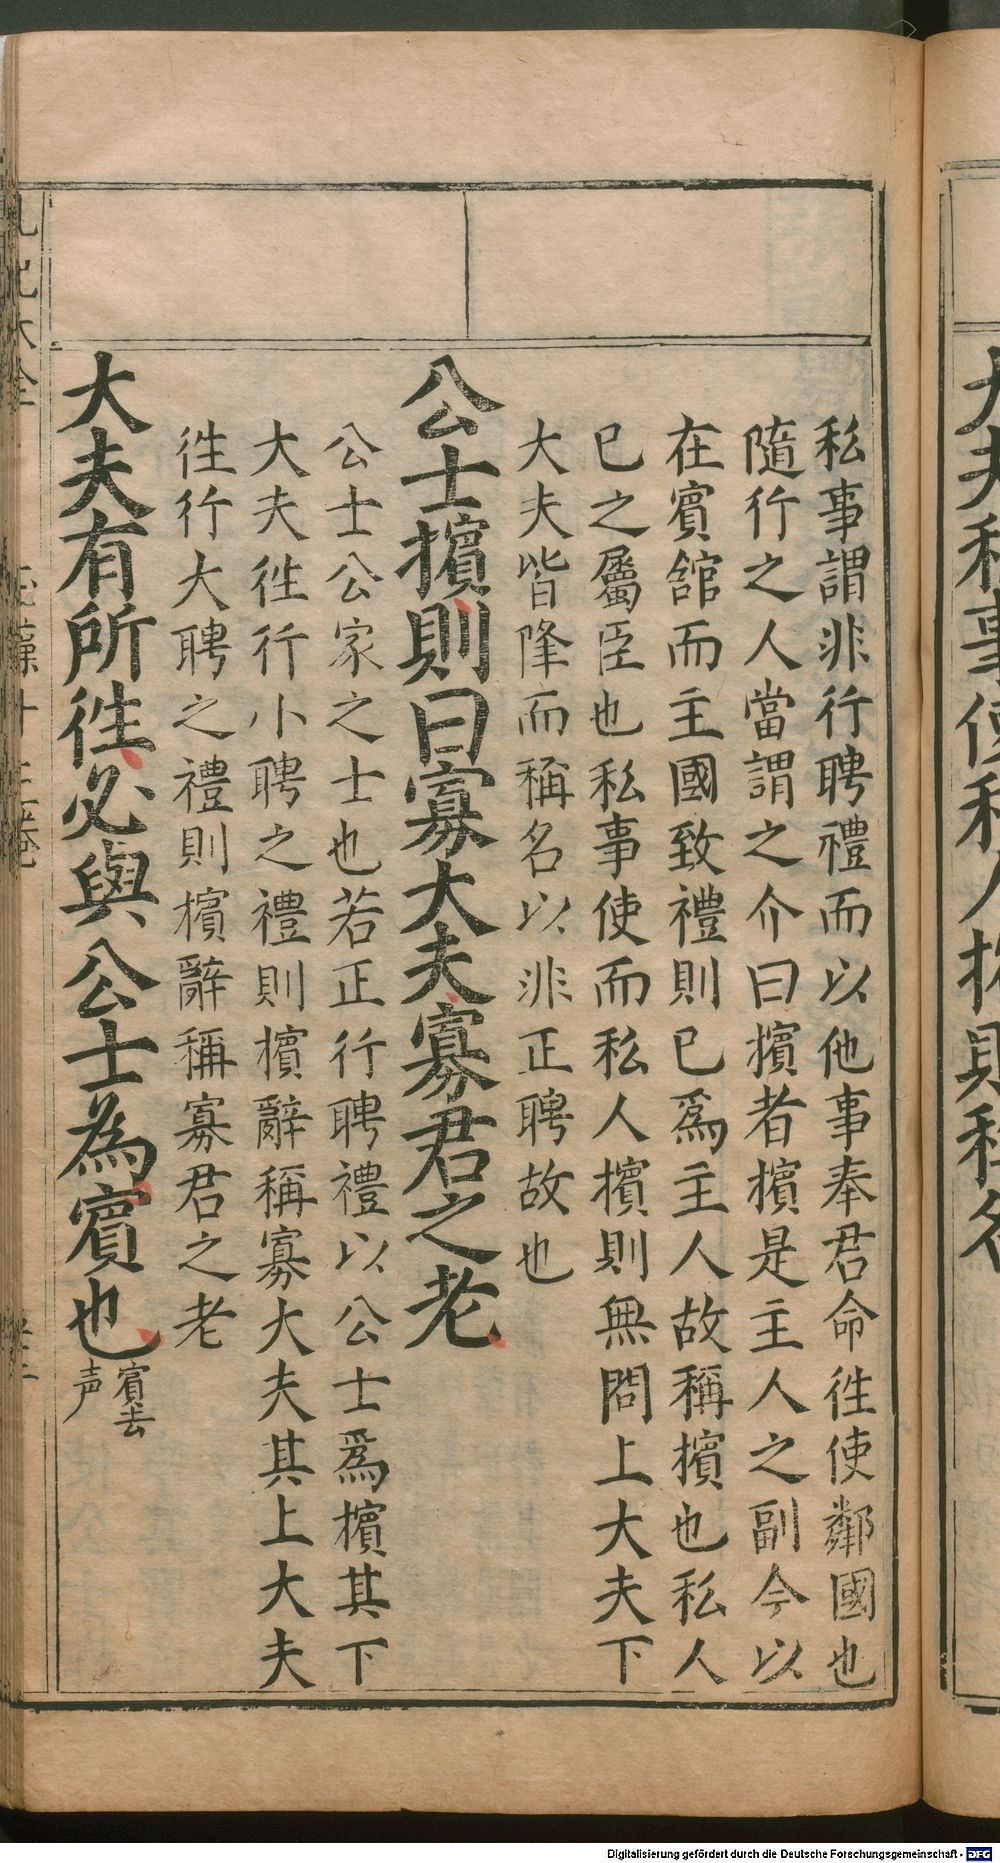 私事謂非行聘禮而以他事奉君命徃使鄰國也
隨行之人當謂之介曰擯者擯是主人之副今以
在賓舘而主國致禮則已爲主人故稱擯也私人
已之屬臣也私事使而私人擯則無問上大夫下
大夫皆降而稱名以非正聘故也
公士擯則曰寡大夫寡君之老
公士公家之士也若正行聘禮以公士爲擯其下
大夫徃行小聘之禮則擯辭稱寡大夫其上大夫
徃行大聘之禮則擯辭稱寡君之老
大夫有所徃必與公士為賓也
賓去
声
Digitalisierung gefördert durch die Deutsche Forschungsgemeinschaft - DFG